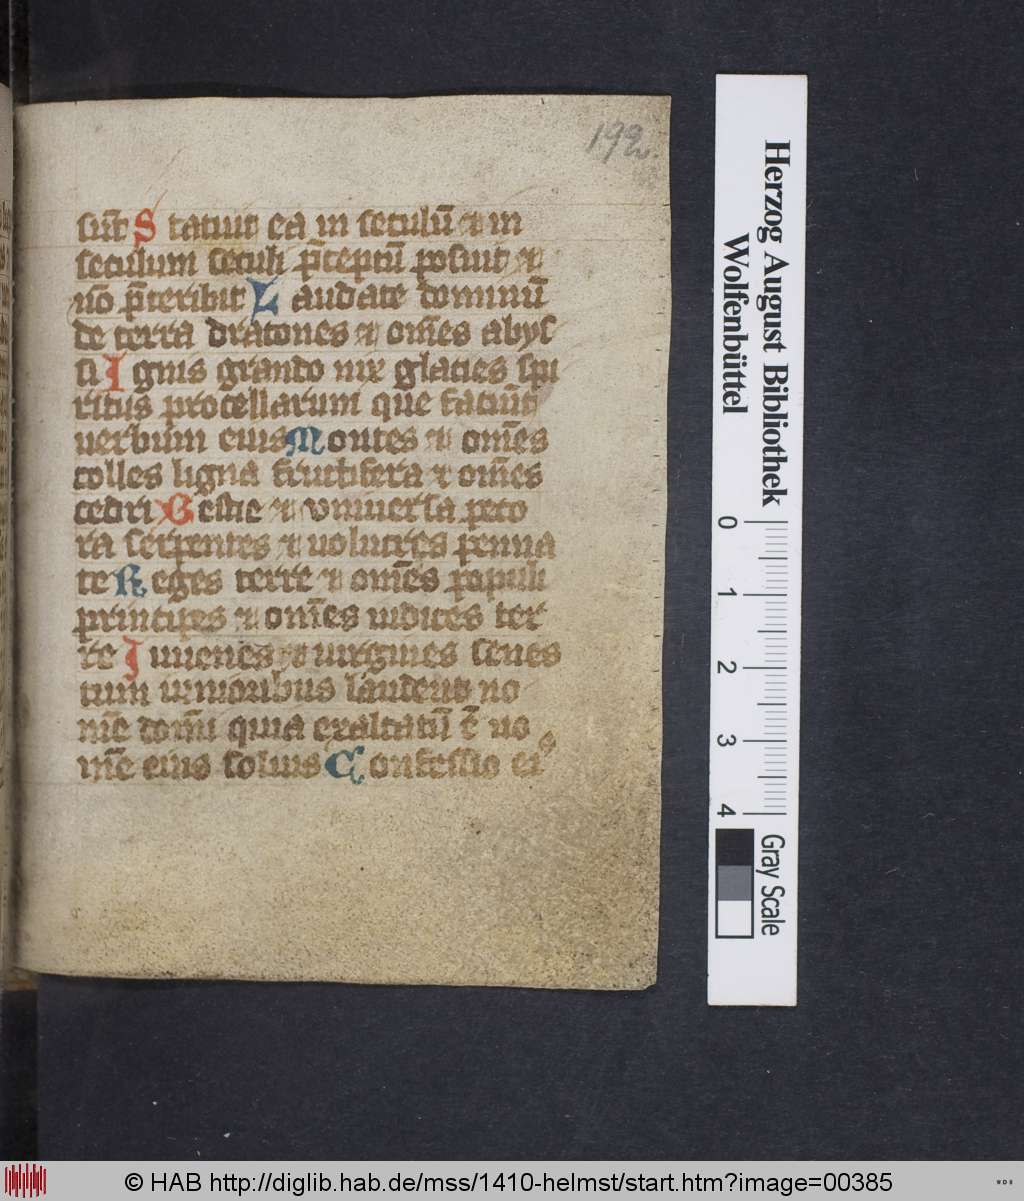 192
sūt Statuit ea in seculū et in
seculum seculi p̄ceptū posuit et
nō p̄teribit Laudate dominū
de terra dracones et om̄es abys
si Ignis grando nix glacies spi
ritus procellarum que faciūt
uerbum eius Montes et om̄es
colles ligna fructifera et om̄es
cedri Bestie et vniuersa peco
ra serpentes et uolucres penna
te Reges terre et om̄es populi
principes et om̄es iudices ter
re Iuuenes et uirgines senes
cum iunioribus laudent no
mē domī quia exaltatū ē no
mē eius solius Confessio ei⁹
Herzog August Bibliothek
Wolfenbüttel
0 1 2 3 4
Gray Scale
© HAB http://diglib.hab.de/mss/1410-helmst/start.htm?image=00385